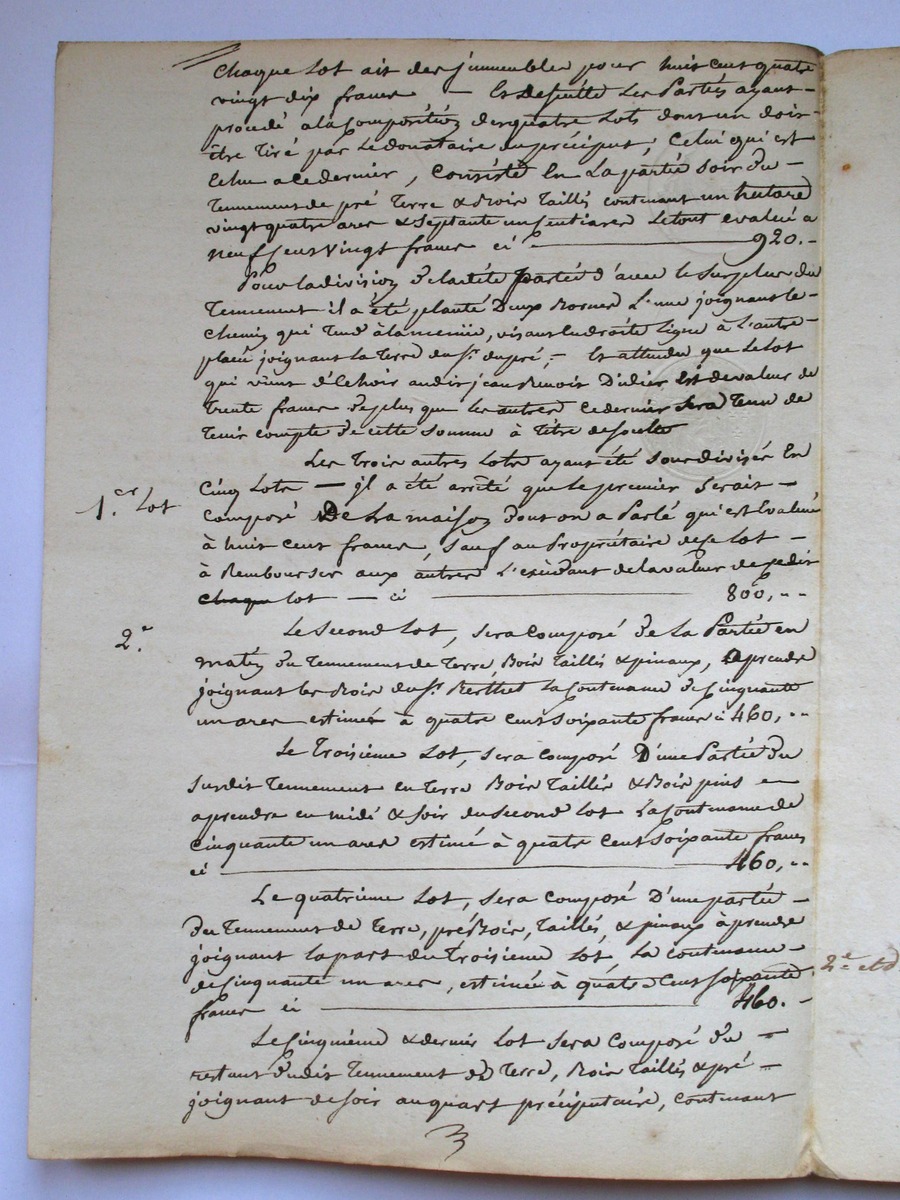 Chaque Lot ait des immeubles pour huit cent quatre
vingt dix francs — Et de suitte Les Parties ayant
procédé a la Composition des quatre Lots dont un doit
être tiré par Le donataire du préciput, Celui qui est
Echu a ce dernier, Consiste En La partie soir du
Tennement de pré Terre & Bois Taillis contenant un hectare
vingt quatre ares & Septante un Sentiares Le tout evalué a
neuf Cens vingt francs ci — 920.-
Pour la division de la dite partie d'avec le Surplus du
Tennement il a été planté Deux Bornes L'une joignant le
Chemin qui Tend à la , visant En droite Ligne à L'autre
placée joignant la Terre du Sr. dupré ; Et attendu que Le Lot
qui vient d'Echoir audit jean Benoit Didier Est de valeur de
Trente francs de plus que les autres Ce dernier Sera Tenu de
Tenir compte de cette somme à Titre de Soulte
Les Trois autres Lots ayant été Sous divisés En
Cinq Lots — il a été arrêté que Le premier Serait
1er. Lot
Composé De La maison Dont on a Parlé qui est Evaluée
à huit Cent francs, Sauf au Propriétaire de ce Lot
à Rembourser aux autres L'excédant de la valeur de ce dit
chaque lot — ci — 800,..
2e.
Le Second Lot, Sera Composé de la Partie en
matin du Tennement de Terre Bois Taillis & pinaux, a prendre
joignant les Bois du Sr. Berthet La Contenance de Cinquante
un ares estimée à quatre Cent Soixante francs ci 460,..
Le Troisième Lot, Sera Composé D'une Partie du
Susdit Tennement en Terre Bois Taillis & Bois pins
a prendre en midi & Soir du Second Lot La Contenance de
Cinquante un ares estimé à quatre Cent Soixante francs
ci — 460,..
Le quatrième Lot, Sera Composé D'une partie
du Tennement de Terre, pré Bois, Taillis, & pinaux à prendre
joignant la part du Troisième Lot, La contenance
de Cinquante un ares, estimée à quatre Cent Soixante
francs ci — 460.-
2e et d
Le Cinquième & dernier Lot Sera Composé du
restant dudit Tennement de Terre, Bois Taillis & pré
joignant de Soir au quart préciputaire, contenant
3